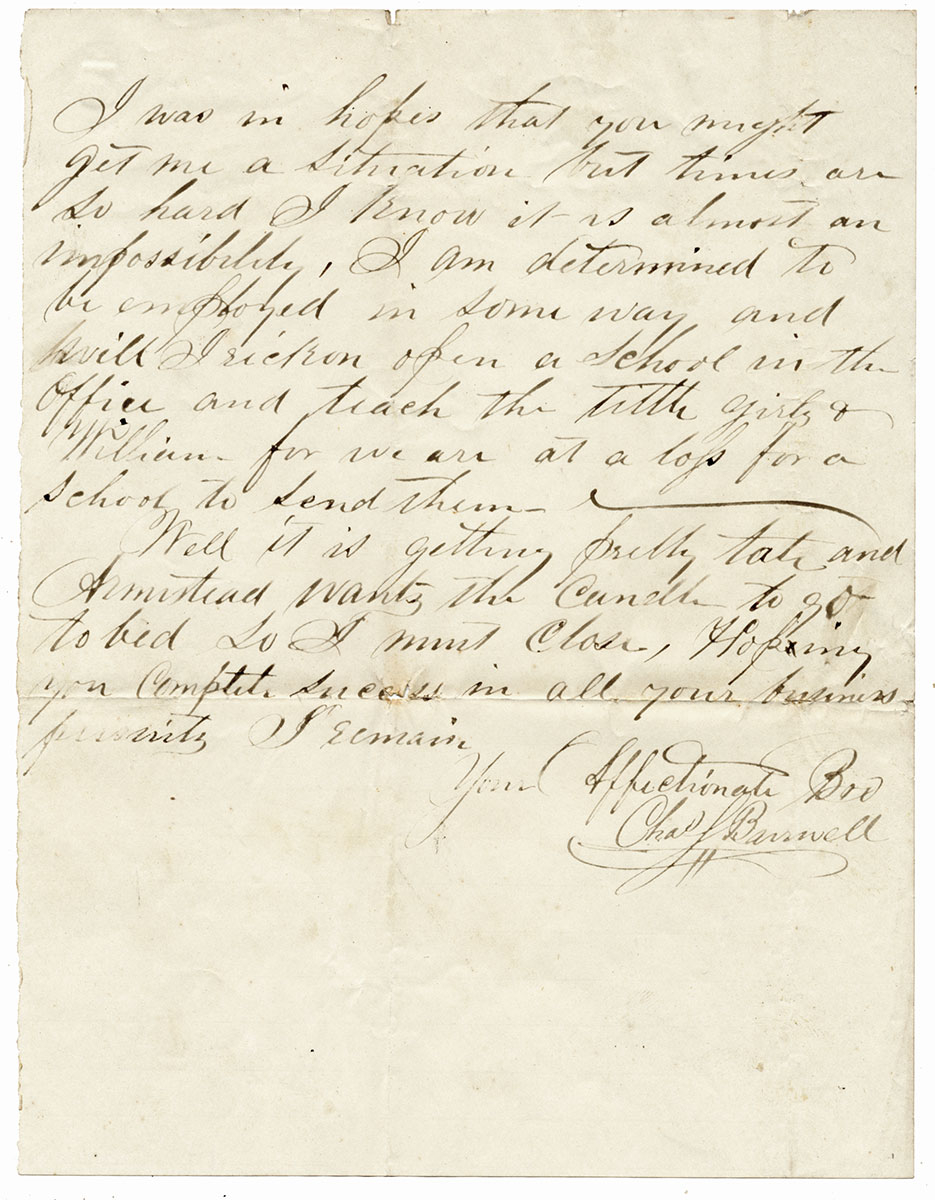 I was in hopes that you might
get me a situation but times are
so hard I know it is almost an
impossibility, I am determined to
be employed in some way and
will I rickon open a School in the
Office and teach the little girls &
William for we are at a loss for a
School to send them
Well it is getting pretty late and
Armistead wants the Candle to go
to bed so I must Close, Hoping
you Complete success in all your business
pursuits I remain
Your Affectionate Bro
Chas L Burwell